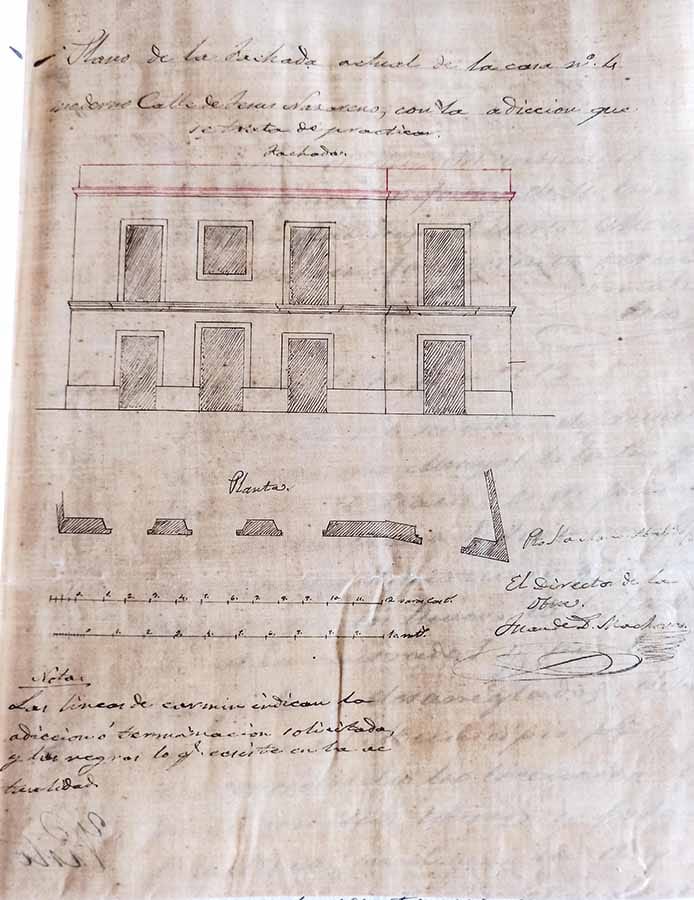 Plano de la Fachada actual de la casa nº 4
moderno Calle de Jesus Nazareno, con la adiccion que
se trata de practicar.
Fachada.
Planta.
El Director de la
Obra.
Juan de D.
Nota.
Las lineas de carmin indican la
adiccion ó terminacion solicitada,
y las negras lo q.e ecsiste en la ac
tualidad